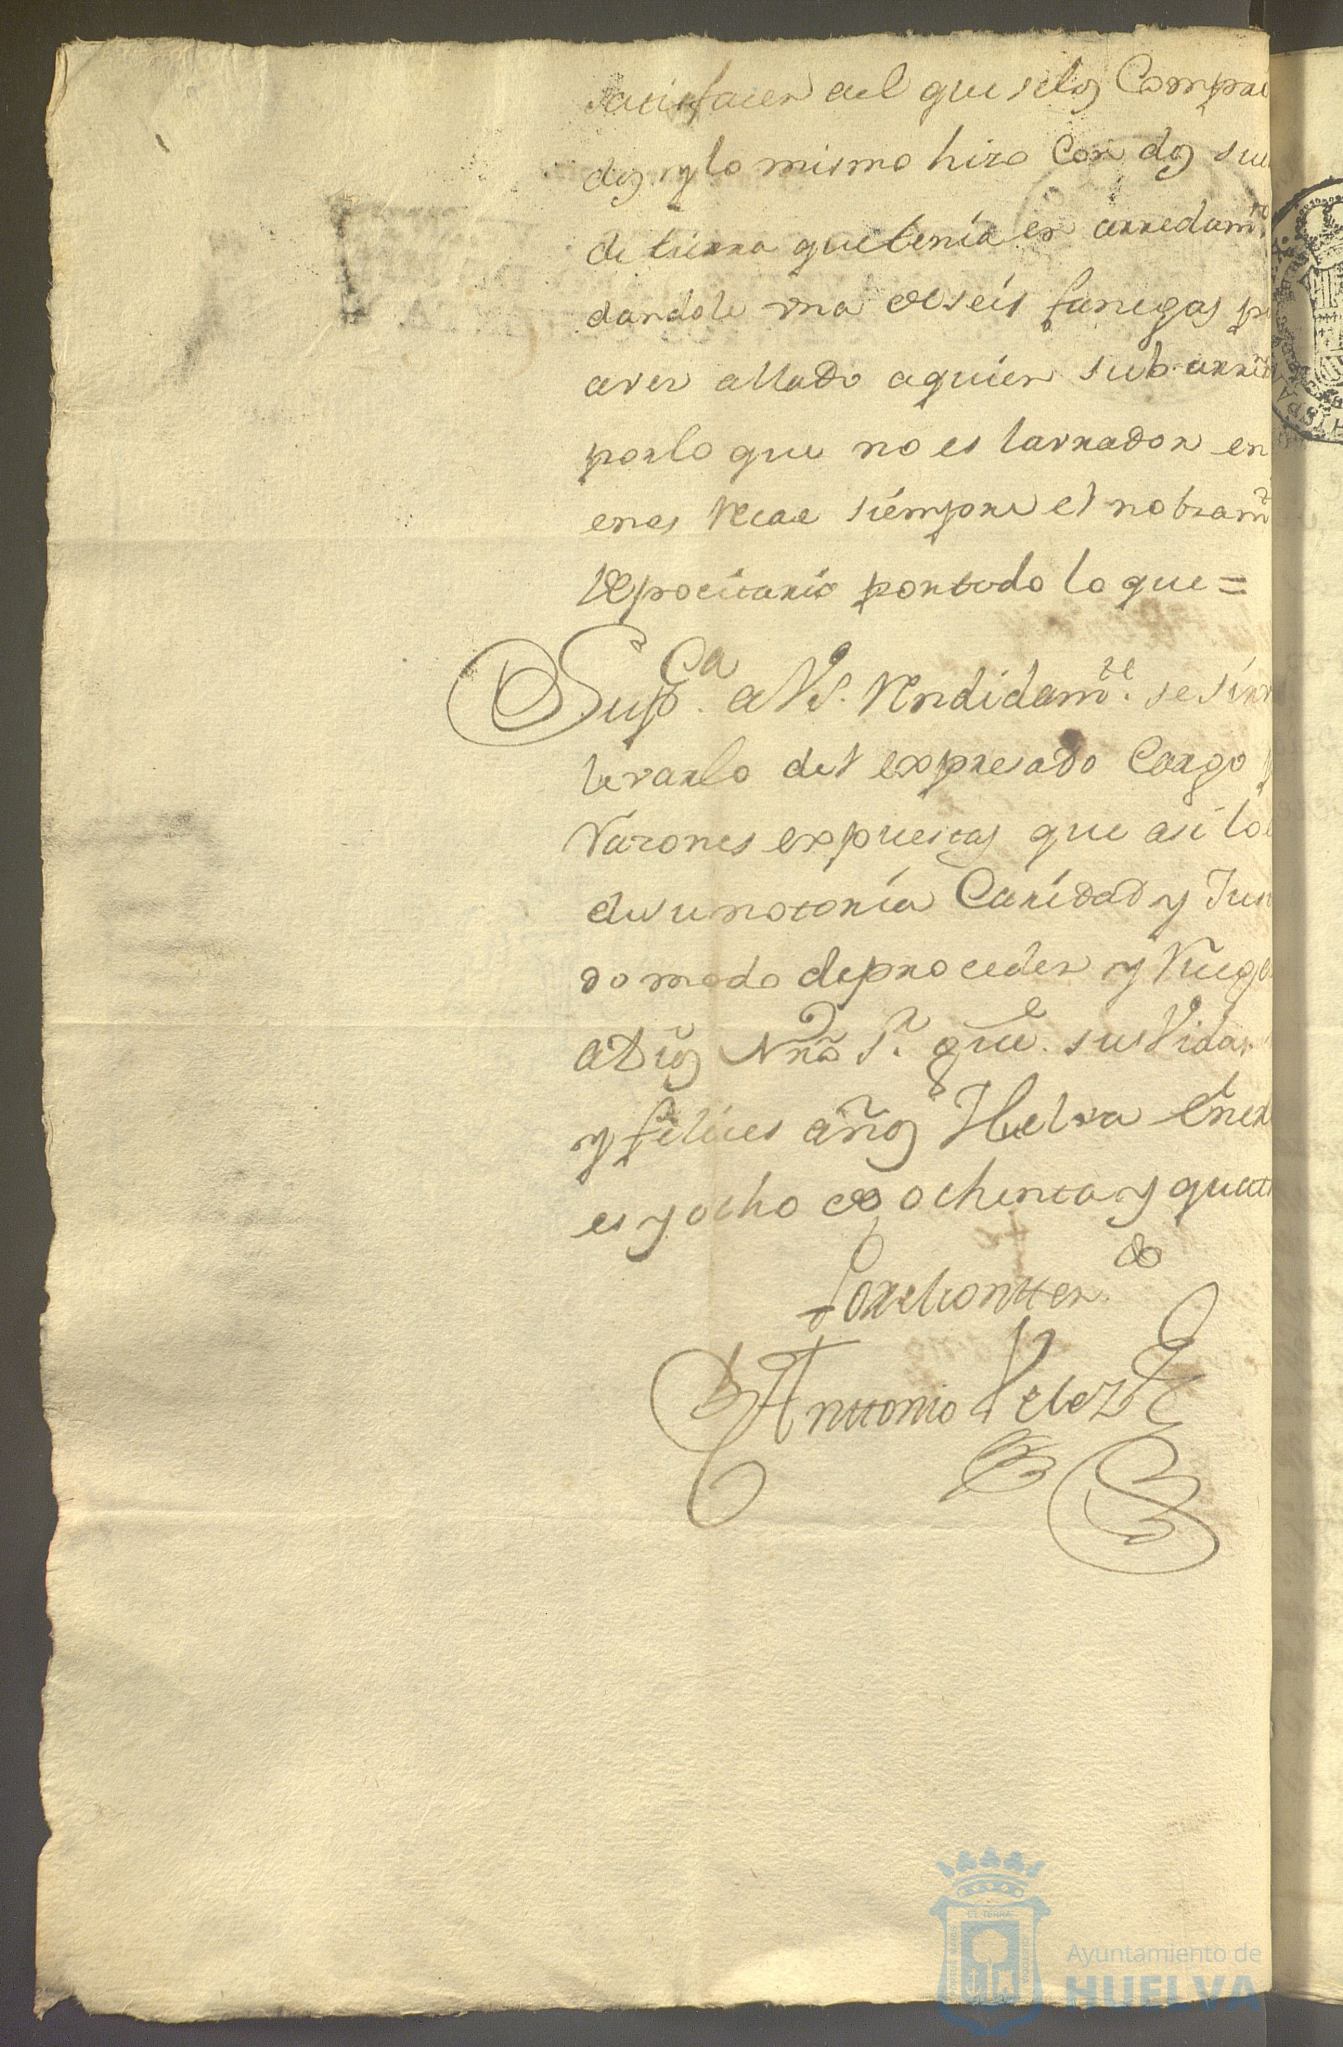 satisfacer ael que selos Compra
dos y lo mismo hizo Con dos sue
de tierra que tenía en arredam.to
dandole vna de seís fanegas p
aver allado a quíen sub arr
porlo que no es lavrador en
enes recae siempre el nobram.to
Depocitario portodo lo que =
Sup.ca a VS. Rendidam.te se sirv
levarlo del expresado Cargo p
razones expuestas que asi lo
de su notoría Caridad y Jus
do modo de proceder y Ruego
a Dios Nrõ S.r gue. su Vida
y felices años Huelva Ener
es y ocho de ochenta y quat
Por el contten.do
Anttonio Velez
Ayuntamiento de
HUELVA